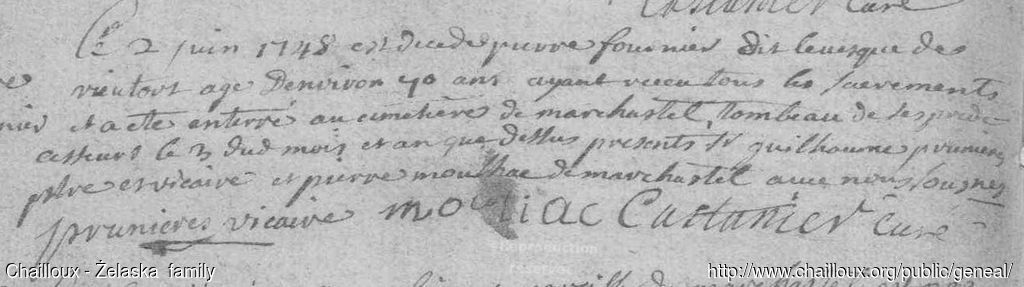 Castanier Curé
Le 2 juin 1748 est decedé pierre fournier dit levesque des
vientorts agé Denviron 70 ans ayant receu tous les sacrements
et a eté enterré au cimetière de marchastel, tombeau de ses prede
cesseurs le 3 dud mois et an que dessus presents Sr guilhaume prunieres
ptre et vicaire et pierre moulhac de marchastel avec nous sousignes
prunieres vicaire Castanier Curé
Chailloux - Żelaska family
http://www.chailloux.org/public/geneal/